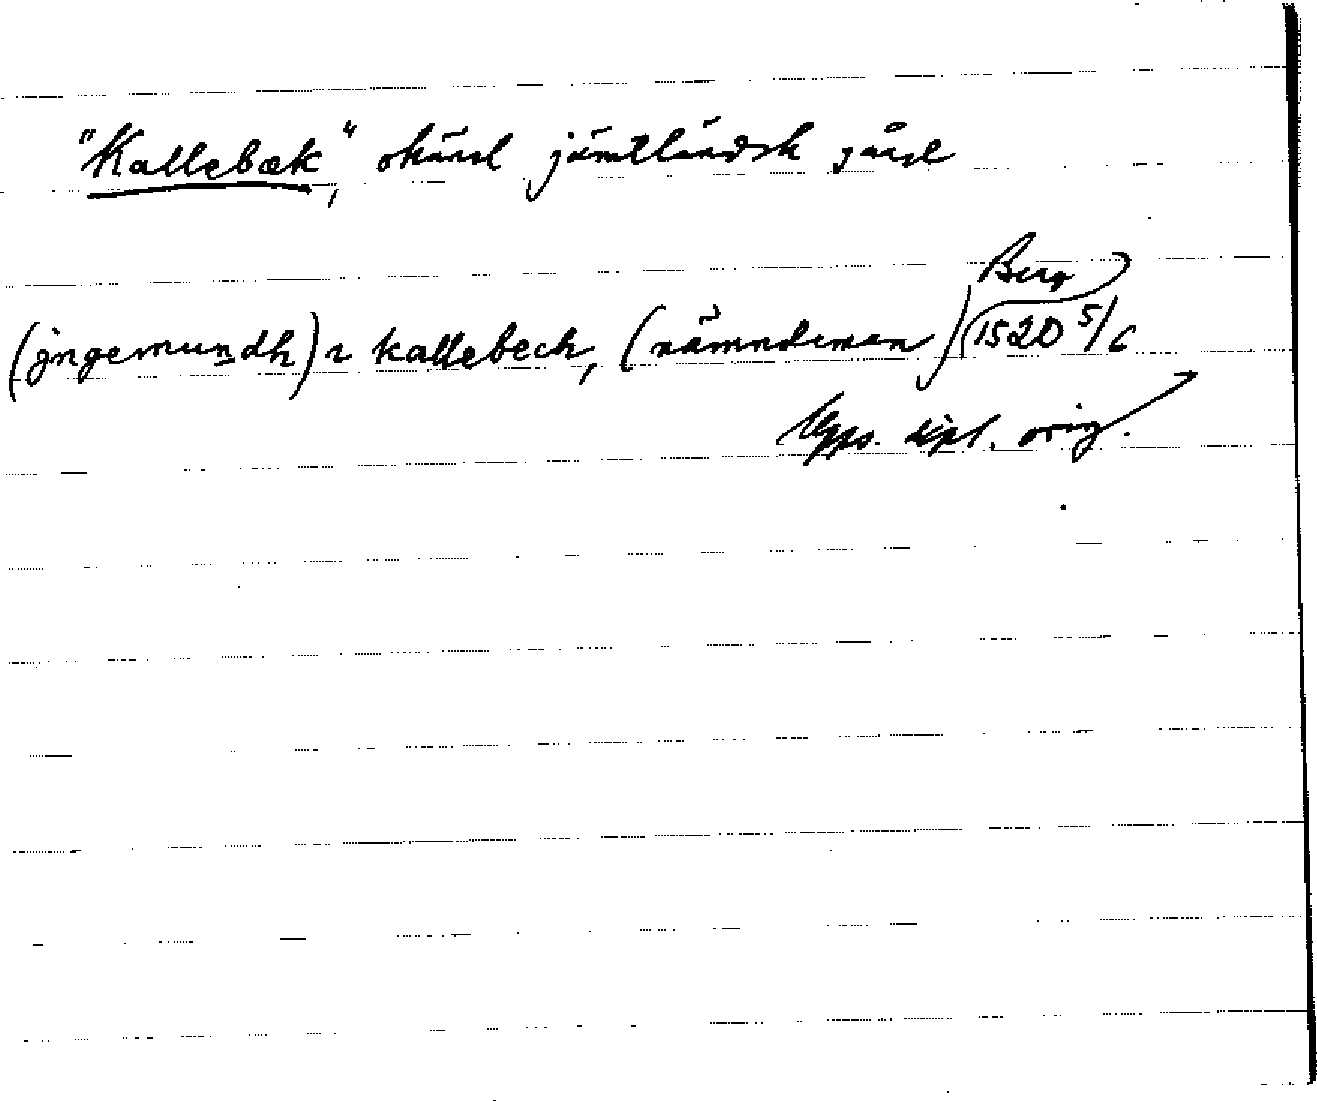 "Kallebæk", okänd jämtländsk gård
Berg
(jngemundh) i kallebech, (nämndeman) 1520 5/6
Upps. dipl. orig.